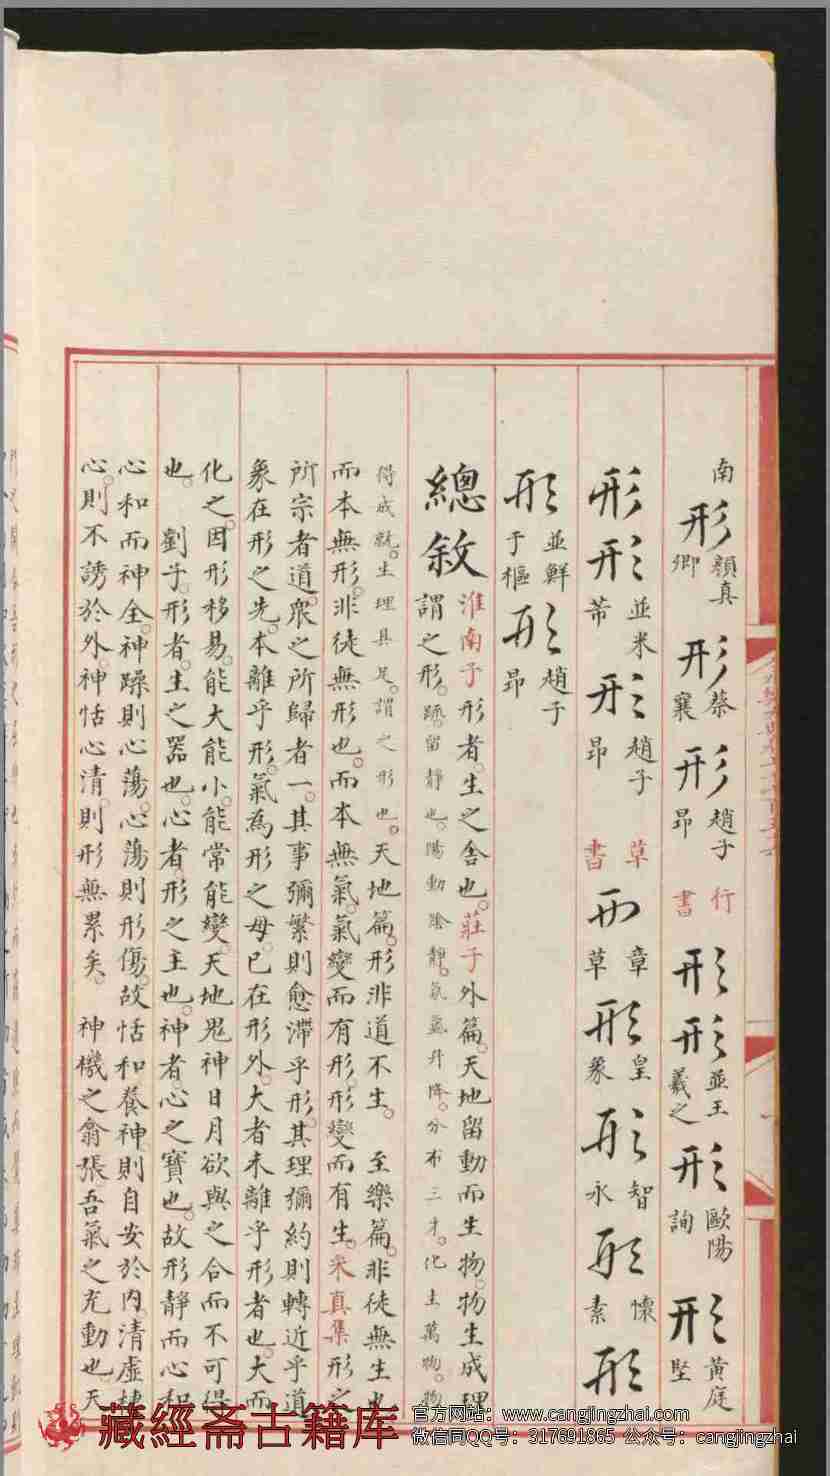 南 形 顏真卿 形 蔡襄 形 趙子昂 行書 形 形 並王羲之 形 歐陽詢 形 黃庭堅
形 形 並米芾 形 趙子昂 草書 形 章草 形 皇象 形 智永 形 懷素 形
形 並鮮于樞 形 趙子昂
總敘
淮南子形者。生之舍也。莊子外篇。天地留動而生物。物生成理
謂之形。疏。留靜也。陽動陰靜。氛氳升降。分布三才。化生萬物。物
得成就。生理具足。謂之形也。天地篇。形非道不生。 至樂篇。非徒無生也
而本無形。非徒無形也。而本無氣。氣變而有形。形變而有生。采真集形之
所宗者道。眾之所歸者一。其事彌繁則愈滯乎形。其理彌約則轉近乎道
象在形之先。本離乎形。氣為形之母。已在形外。大者未離乎形者也。大而
化之。因形移易。能大能小。能常能變。天地鬼神日月欲與之合而不可得
也。 劉子。形者。生之器也。心者。形之主也。神者心之寶也。故形靜而心和
心和而神全。神躁則心蕩。心蕩則形傷。故恬和養神則自安於內。清虛棲
心。則不誘於外。神恬心清。則形無累矣。 神機之翕張。吾氣之充動也。天
藏經斋古籍库
官方网站：www.cangjingzhai.com
微信同QQ号：317691865 公众号：cangjingzhai